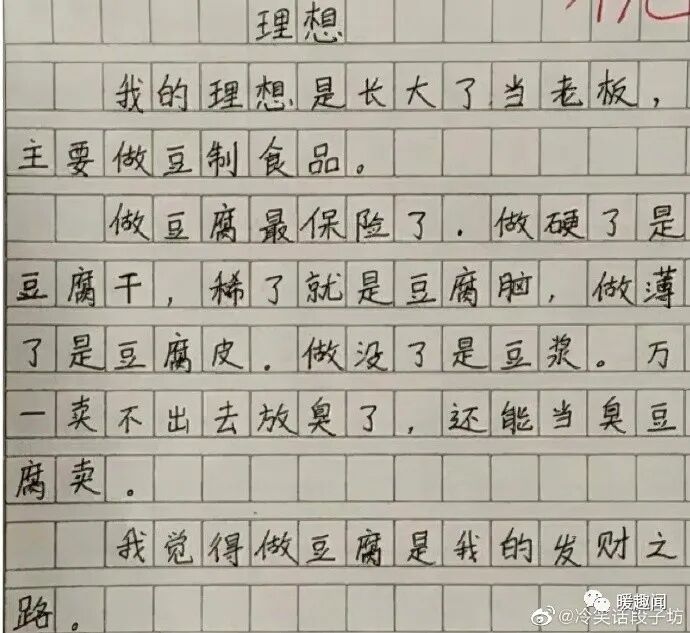 理想
我的理想是长大了当老板，
主要做豆制食品。
做豆腐最保险了．做硬了是
豆腐干，稀了就是豆腐脑，做薄
了是豆腐皮．做没了是豆浆。万
一卖不出去放臭了，还能当臭豆
腐卖。
我觉得做豆腐是我的发财之
路。
暖趣闻
@冷笑话段子坊